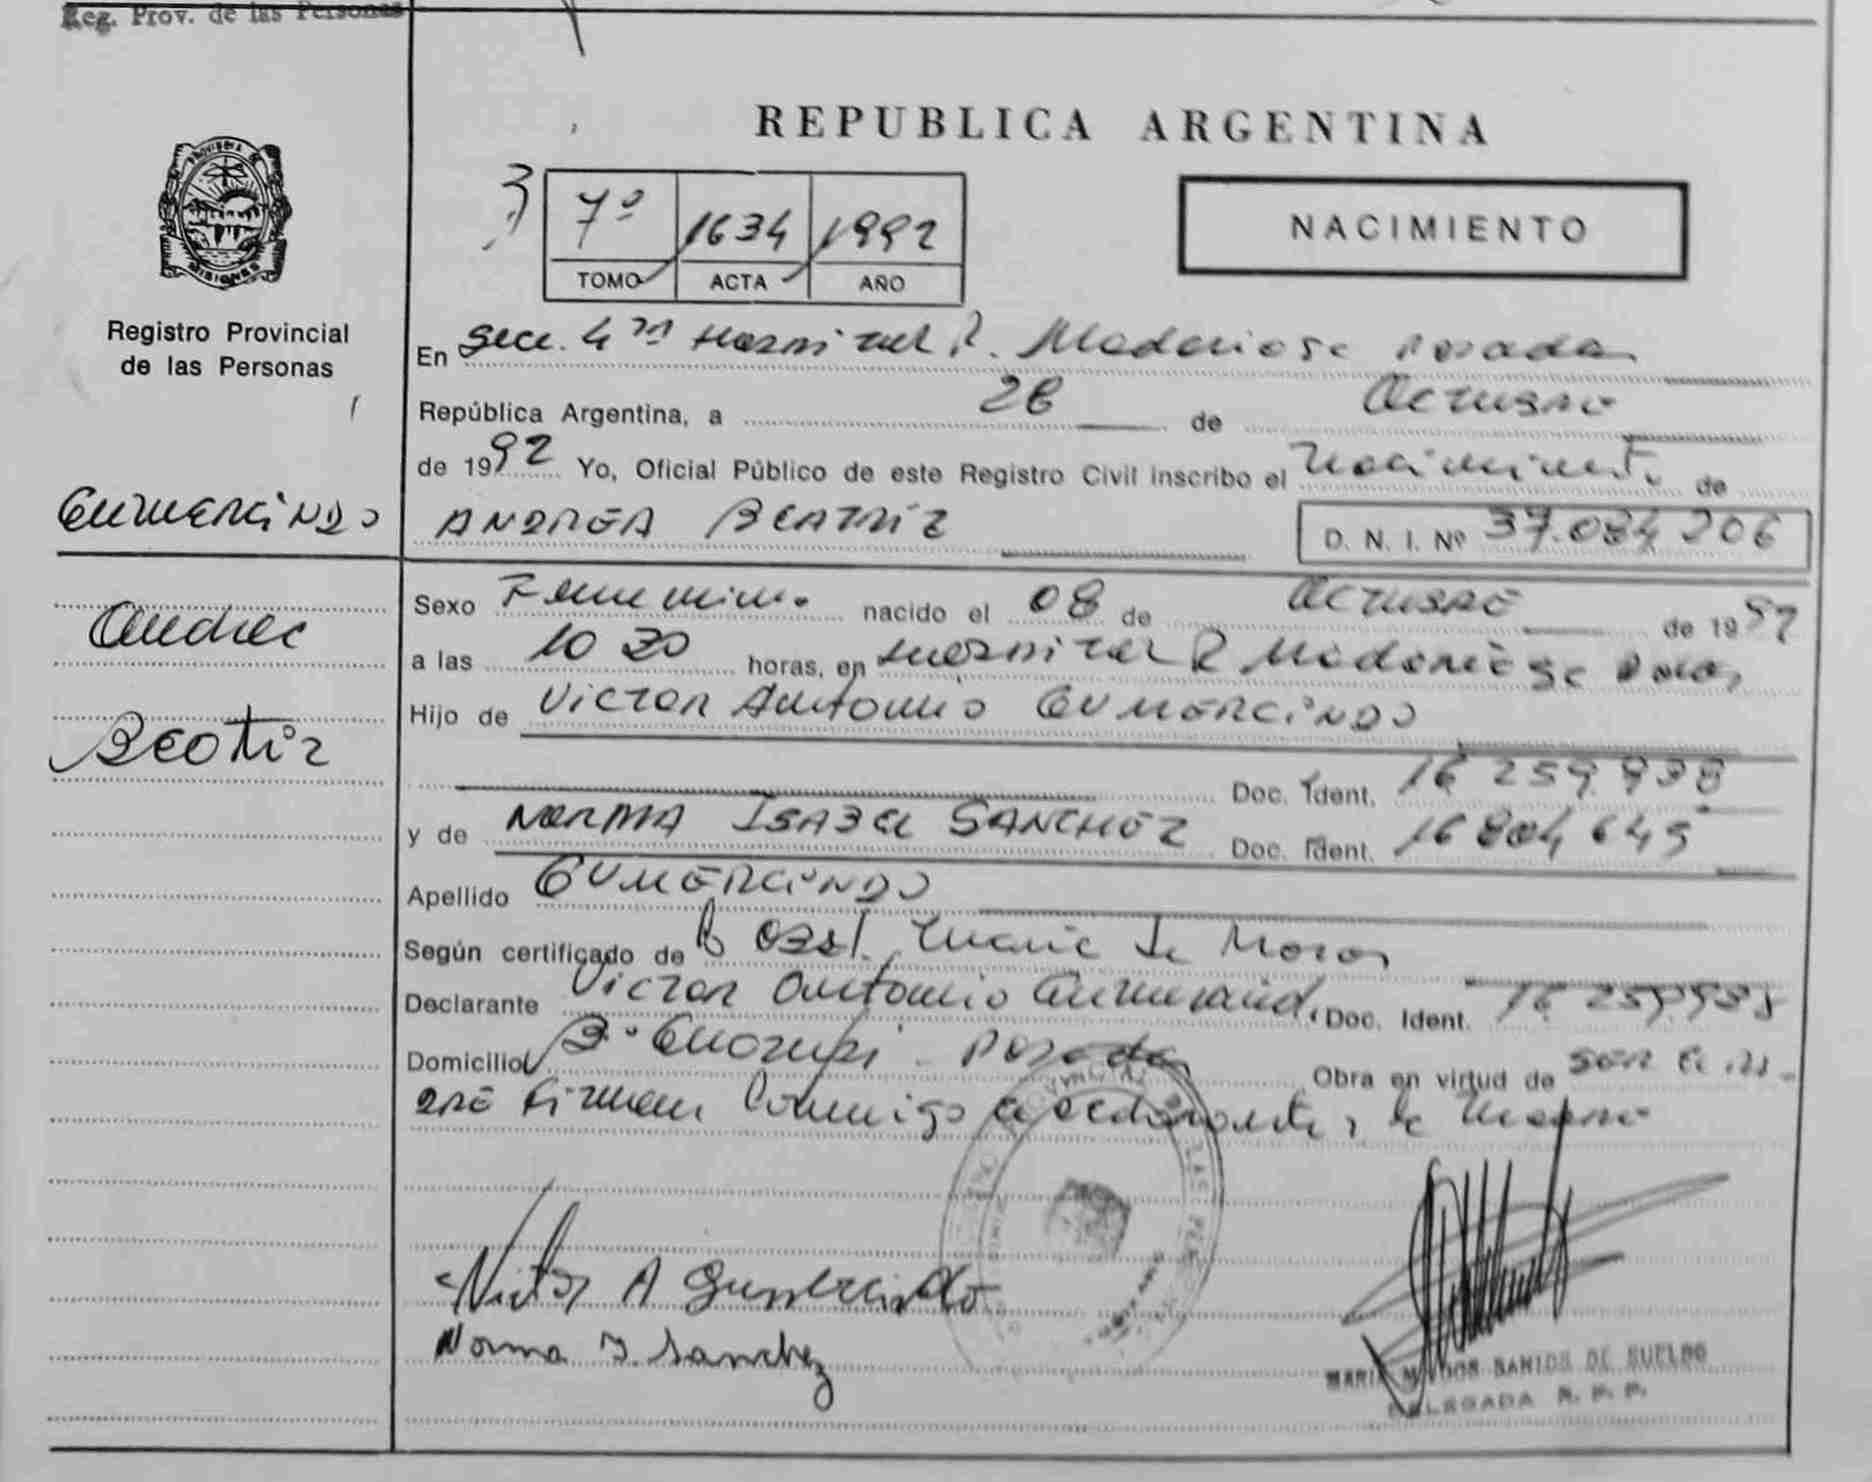 Reg. Prov. de las Personas
REPUBLICA ARGENTINA
7º 1634 1992
TOMO ACTA AÑO
NACIMIENTO
PROVINCIA DE
MISIONES
Registro Provincial
de las Personas
En Secc. 4ta Hospital R. Madariaga Posadas
República Argentina, a 28 de Octubre
de 1992 Yo, Oficial Público de este Registro Civil inscribo el Nacimiento de
GUMERCINDO
ANDREA BEATRIZ D. N. I. Nº 37.084 206
Andrea
Beatriz
Sexo Femenino nacido el 08 de Octubre de 1992
a las 10 30 horas, en Hospital R Madariaga
Hijo de Victor Antonio GUMERCINDO
Doc. Ident. 16 259 938
y de NORMA ISABEL SANCHEZ Doc. Ident. 16 804 645
Apellido GUMERCINDO
Según certificado de
Declarante Victor Antonio Gumercindo Doc. Ident. 16 259.938
Domicilio Bº Posadas Obra en virtud de ser el
Firman Conmigo el declarante y la madre
Victor A Gumercindo
Norma I. Sanchez
DELEGADA R. P. P.